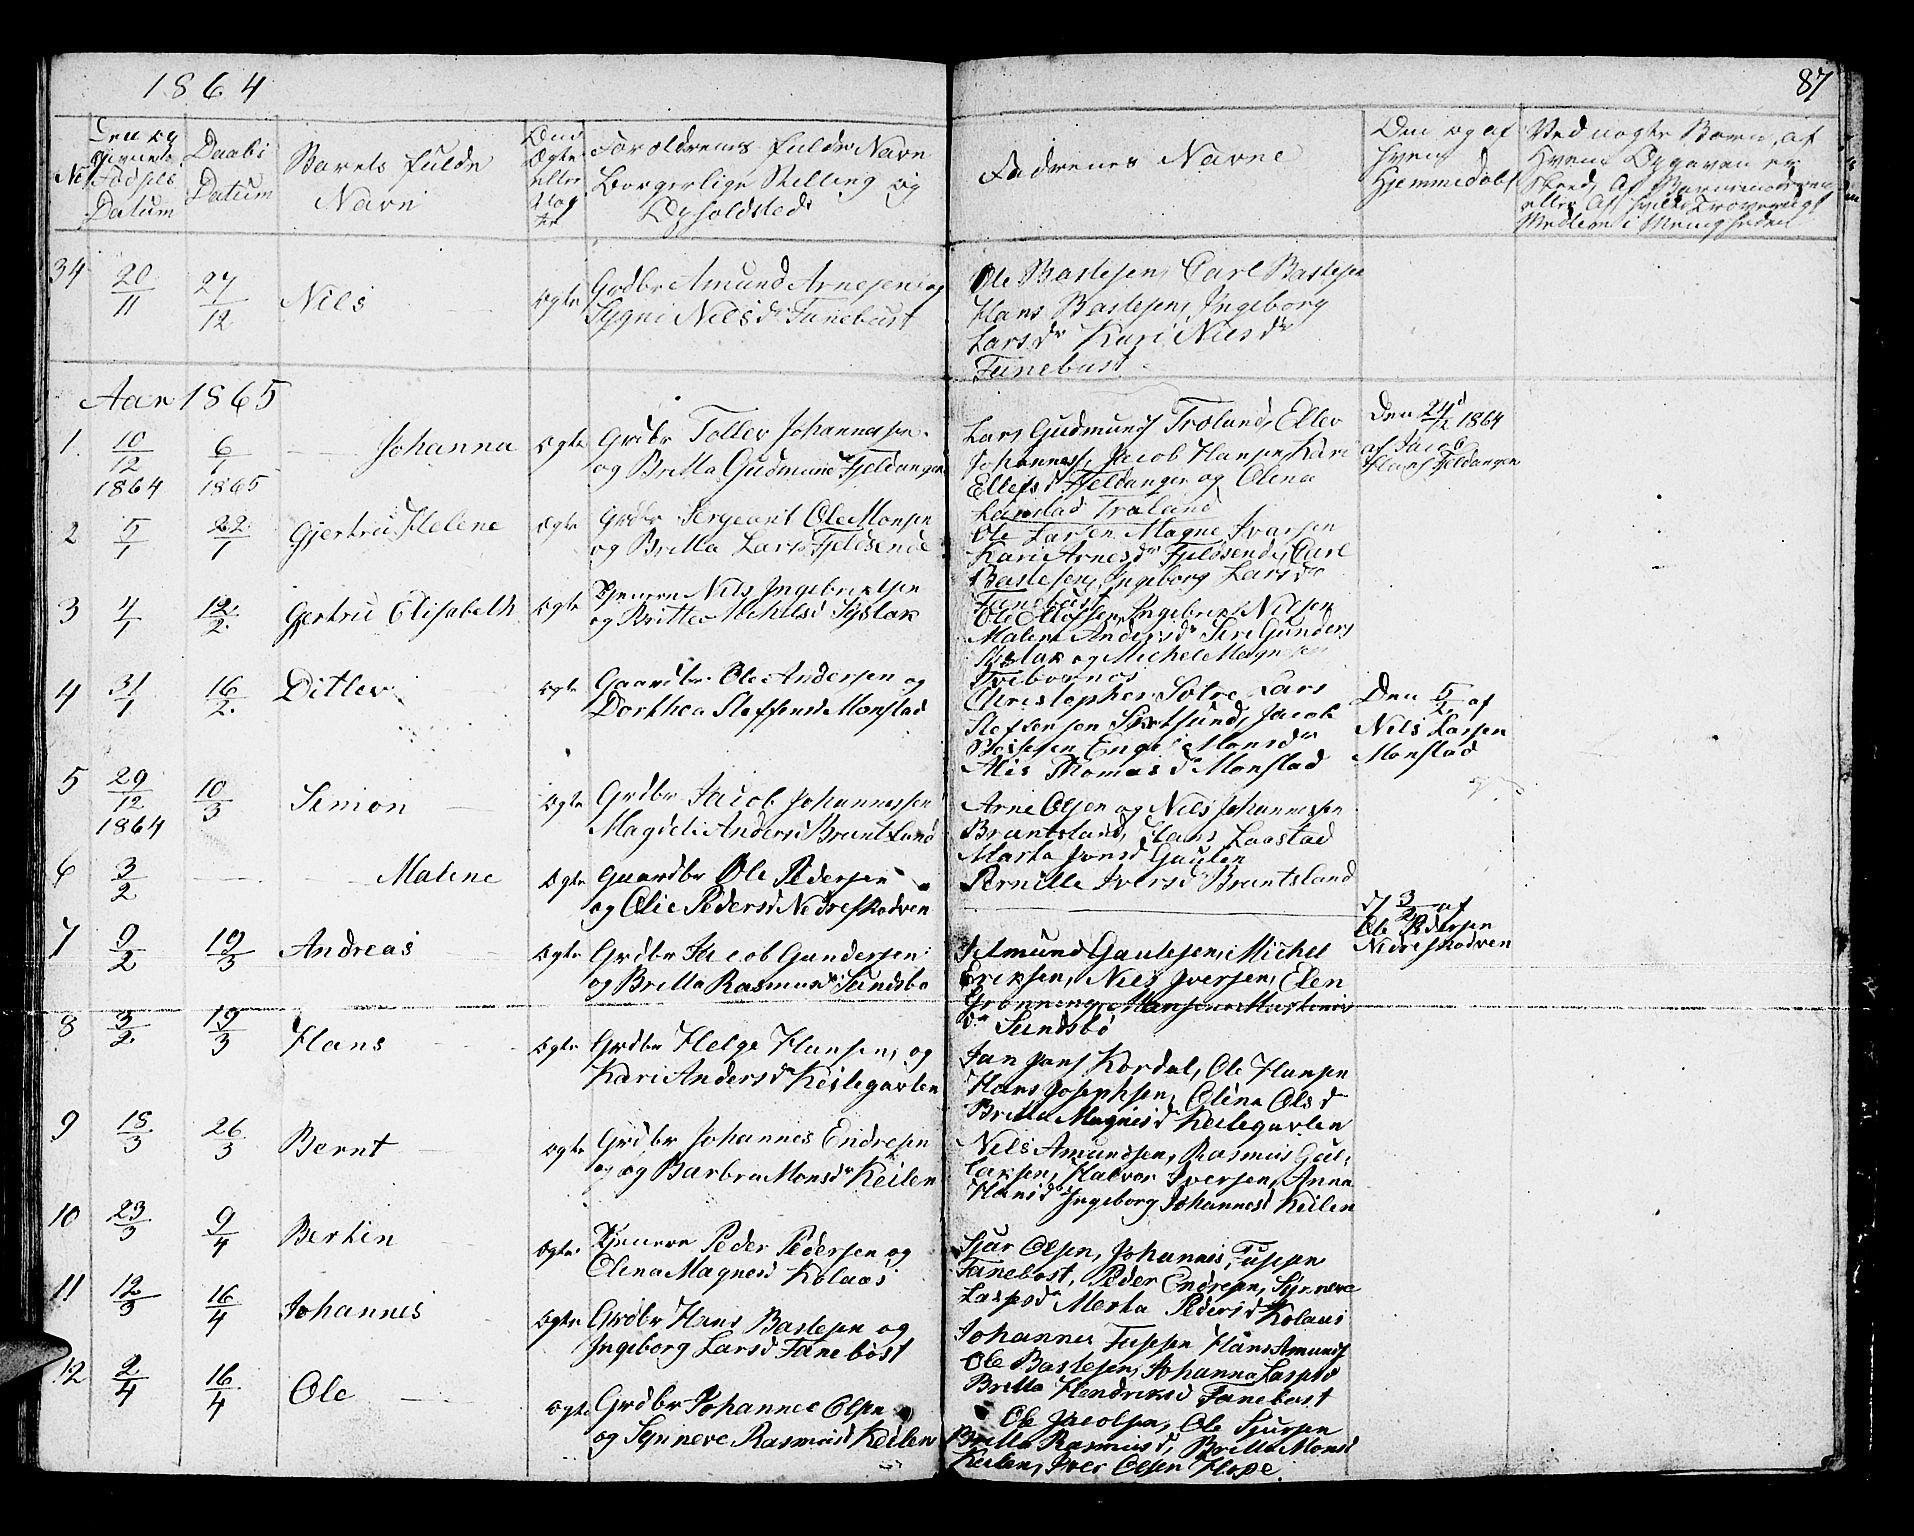 1864
87
No
Den og
Fødsels
Datum
Daabs
Datum
Barets fulde
Navn
Ægte
eller
Forældrenes fulde Navn
Borgerlige Stilling og
Opholdsted
Fadrenes Navne
Den og af
Hvem
Hjemmedøbt
Ved uægte Børn, af
Hvem Opgaven er
Skeed, af Barnemoderen
eller af
Medlem i Menigheden
34 20/11 27/12 Nils Ægte Grdbr Amund Arnesen og
Sygni Nilsdr Fanebust
Ole Baslesen, Carl Baslesen
Hans Baslesen, Ingeborg
Larsdr Kari Nilsdr
Fanebust
Aar 1865
1. 10/12 1864 6/1 1865 Johanna Ægte Grdbr Tollev Johannessen
og Britta Gudmundsdr Fjeldanger
Lars Gudmunds Træland, Ellev
Johanness, Jacob Hansen, Kari
Ellefsd Fjeldanger og Olena
Larsdad Træland
Den 24d/12 1864
af Jacob
Hans Fjeldanger
2 5/1 22/1 Gjertru Helene Ægte Grdbr Sergeant Ole Monsen
og Britta Larsd Fjeldsende
Ole Larsen Magne Ivarsen
Kari Arnesdr Fjeldsende, Carl
Baslesen, Ingeborg Larsdr
Fanebust
3 4/1 12/2 Gjertru Elisabeth Ægte Nils Ingebrigtsen
og Britte Mikelsd Syslak
Ole Olofsen Ingebrigt Nilsen
Malene Andersdr Siri Gunders
Syslak og Michel Magnesen
4 31/1 16/2 Ditlev Ægte Gaardbr. Ole Andersen og
Dorthea Steffensd Monstad
Christopher Sotre Lars
Steffensen Skutsund, Jacob
Enge Monsdr
Alis Thomasdr Monstad
Den 5/2 af
Nils Larsen
Monstad
5 29/12 1864 10/3 Simon Ægte Grdbr Jacob Johannessen
Magdeli Andersd Bruntland
Arne Olsen og Nils Johannesen
Bruntsland, Hans Laastad
Marta Jonsd Gaulen
Pernille Iversd Bruntsland
6 3/2 Malene Ægte Gaardbr Ole Pedersen
og Olie Pedersd Nedreskodven
D 3/2 af
Ole Pedersen
Nedreskodven
7 9/2 19/3 Andreas Ægte Grdbr Jacob Gundersen
og Britta Rasmusdr Sundsbø
Amund Gaulesen, Michel
Eriksen, Nils Iversen, Elen
Grønning, Monsine Mortens
dr Sundsbø
8 3/2 19/3 Hans Ægte Grdbr Helge Hansen, og
Kari Andersdr Keilegavlen
Jan Jans Kordal, Ole Hansen
Hans Josephsen, Olina Olsdr
Britta Magnesd Keilegavlen
9 15/3 26/3 Bernt Ægte Grdbr Johannes Endresen
og og Barbra Monsdr Keilen
Nils Amundsen, Rasmus Gul-
laksen, Halvor Iversen, Anna
Hansdr Ingeborg Johannesd Keilen
10 23/3 9/4 Bertin Ægte Peder Pedersen og
Olena Magnesd Kolaas
Sjur Olsen, Johannis Tuppen
Fanebost, Peder Endresen, Synneve
Laspsdr Merta Pedersdr Kolaas
11 12/3 16/4 Johannes Ægte Grdbr Hans Baslesen og
Ingeborg Larsd Fanebost
Johannes Tuppen Hans Amunds
Ole Baslesen, Johanna Laspsd
Britta Hendriksd Fanebust
12 2/4 16/4 Ole Ægte Grdbr Johannes Olsen
og Synneve Rasmusd Keilen
Ole Jacobsen, Ole Sjursen
Britta Rasmusd, Britta Monsd
Keilen, Iver Olsen Hope.